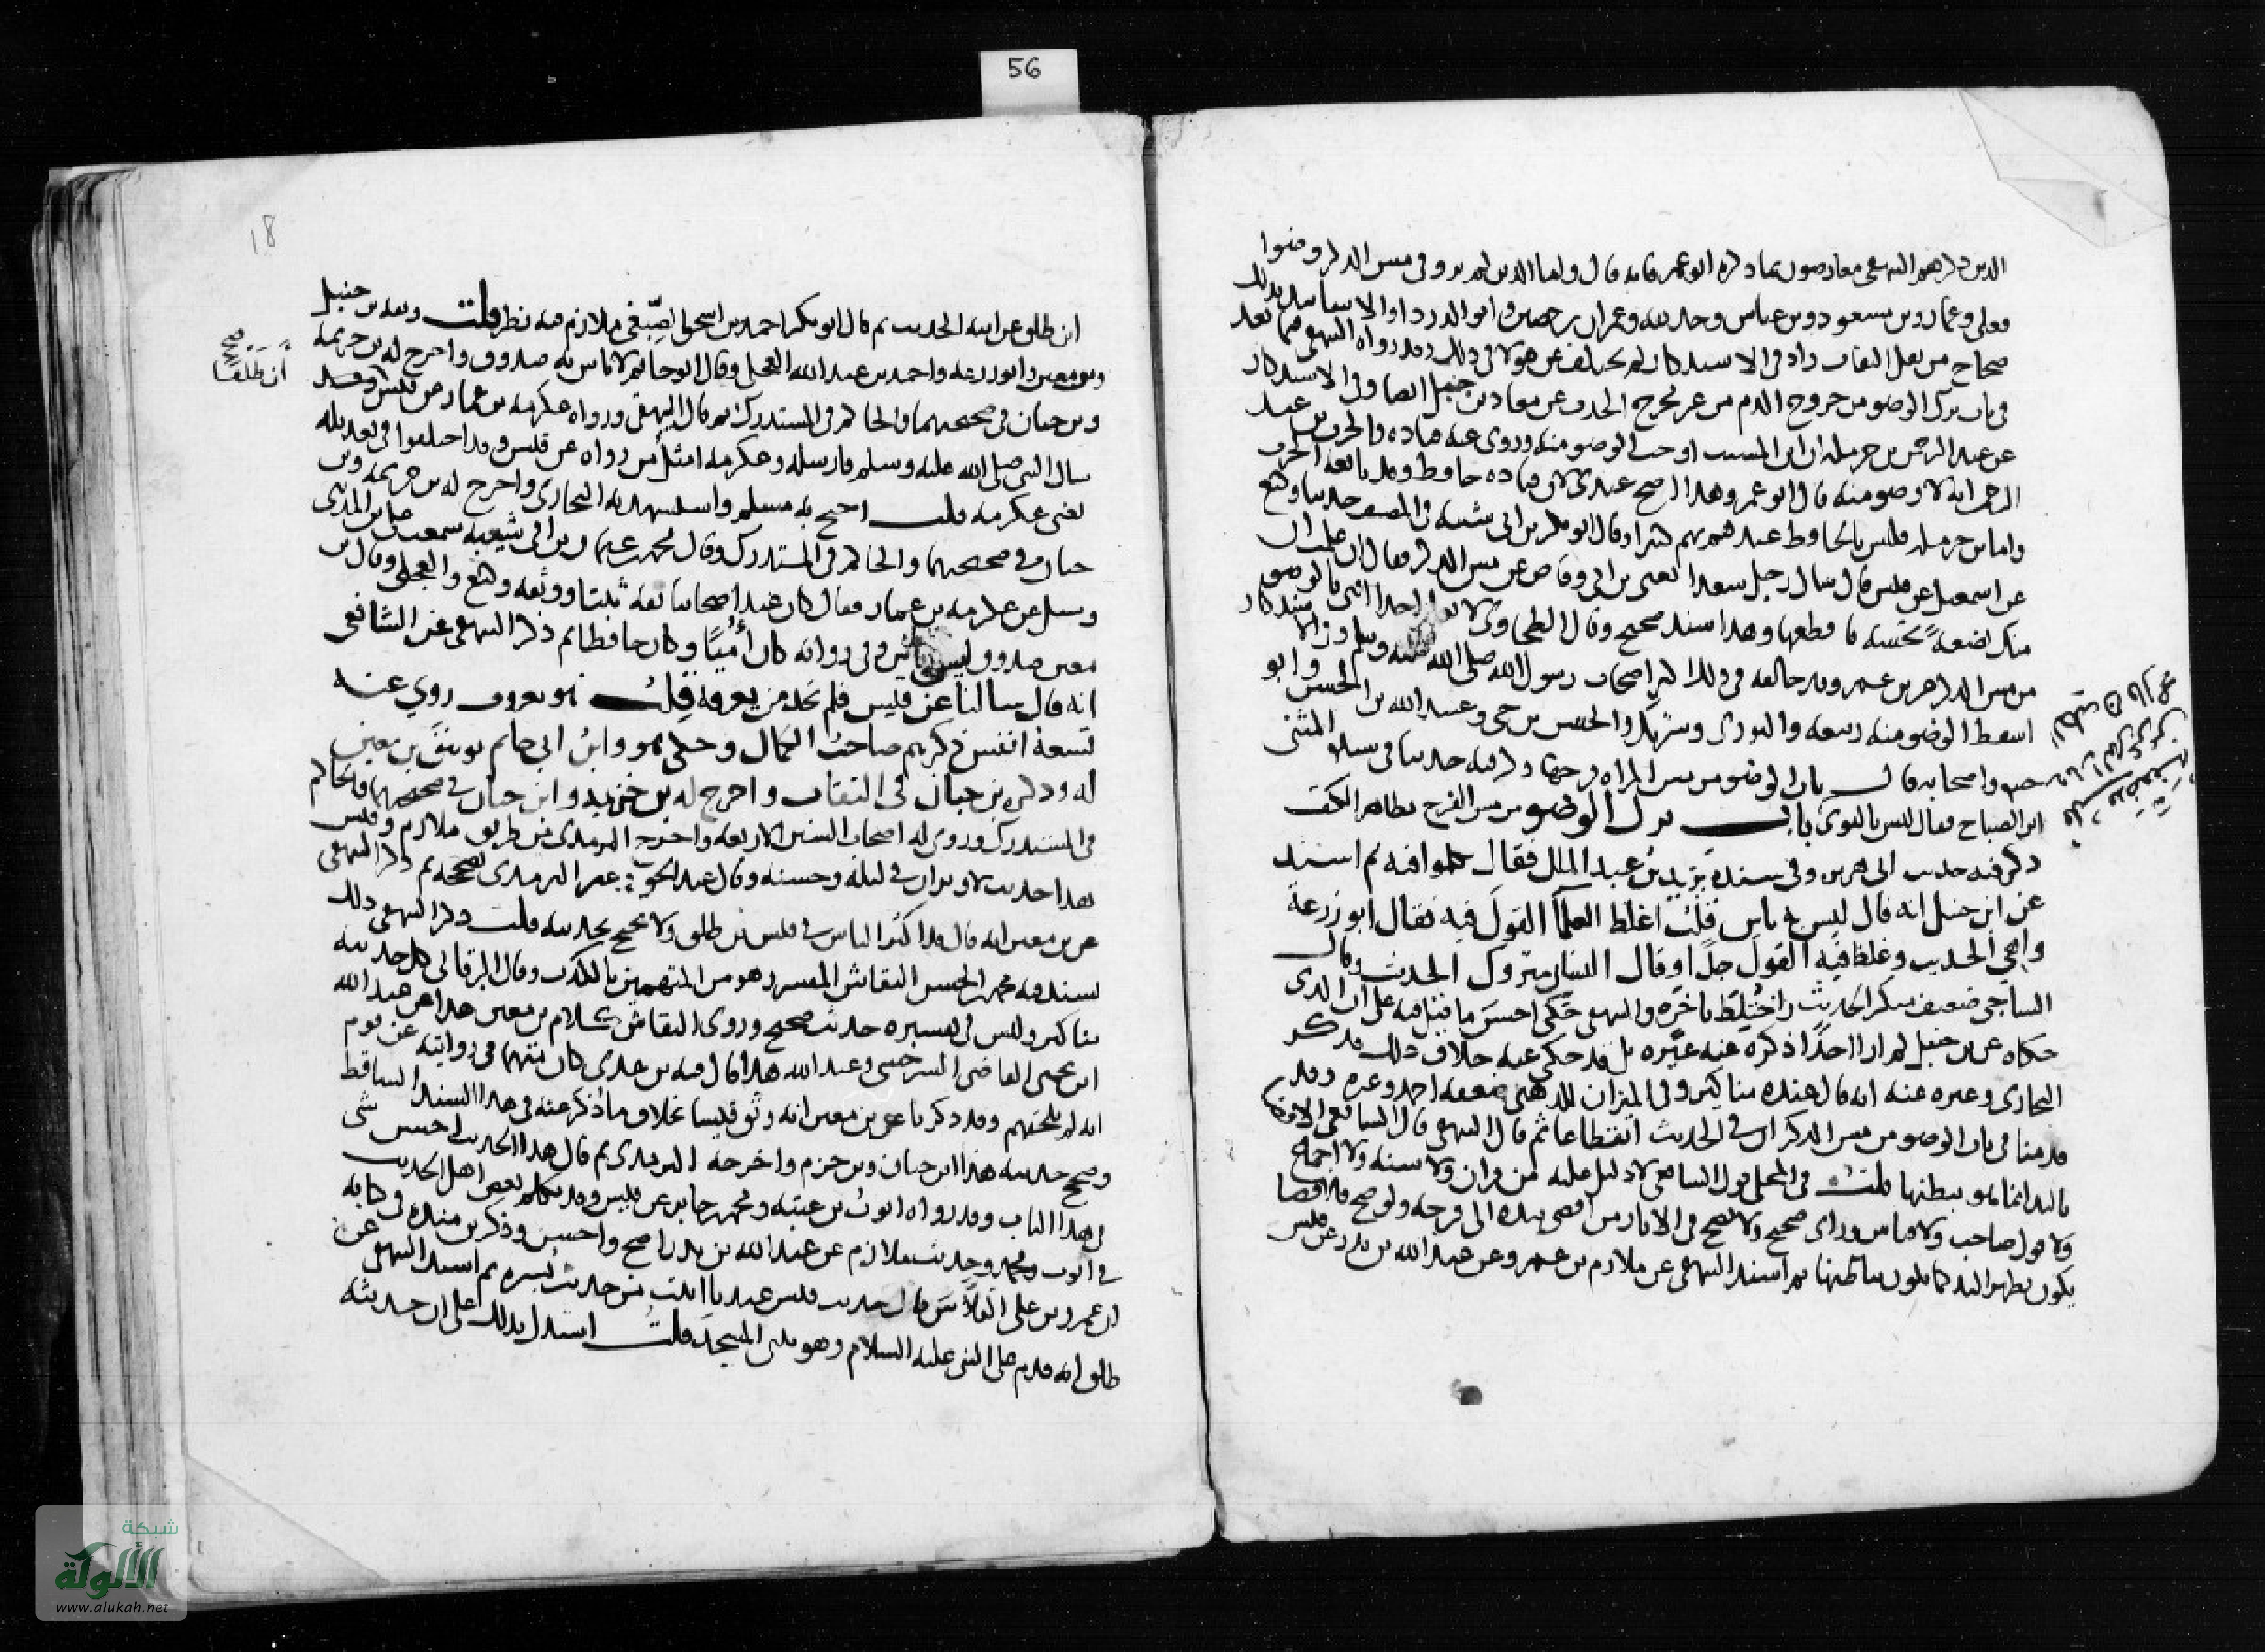 56
الذين ذكرهم البيهقى معارضون بما ذكره ابو عمر فانه قال واما الذين لم يروا فى مس الذكر وضوا
فعلى وعمار وبن مسعود وبن عباس وحذيفه وعمران بن حصين وابو الدرداء والاسانيد بذلك
صحاح من نقل الثقات زاد فى الاستذكار لم يختلف عن هولا فى ذلك وقد رواه البيهقى فيما بعد
فى باب ترك الوضو من خروج الدم من غير مخرج الحدث عن معاذ بن جبل ايضا وفى الاستذكار
عن عبد الرحمن بن حرمله ان ابن المسيب اوجب الوضو منه وروى عنه قتاده والحرث بن عبد
الرحمن انه لا وضو منه قال ابو عمر وهذا اصح عندى لان قتاده حافظ وقد تابعه الحرث
واما بن حرمله فليس بالحافظ عندهم يهم كثيرا وقال ابو بكر بن ابى شيبه فى المصنف حدثنا وكيع
عن اسمعيل عن قيس قال سال رجل سعدا يعنى بن ابى وقاص عن مس الذكر فقال ان علمت ان
منك بضعة نجسه فاقطعها وهذا سند صحيح وقال الطحاوى لا نعلم احدا افتى بالوضو
من مس الذكر غير بن عمر وقد خالفه فى ذلك اكثر اصحاب رسول الله صلى الله عليه وسلم وفى الاستذكار
اسقط الوضو منه ربيعه والثورى وشريك والحسن بن حى وعبيد الله بن الحسن وابو
حنيفه واصحابه قال باب الوضو من مس المراه فرجها ذكر فيه حديثا فى سنده المثنى
ابن الصباح فقال ليس بالقوى باب ترك الوضو من مس الفرج بظاهر الكف
ذكر فيه حديث ابى هريره وفى سنده يزيد بن عبد الملك فقال تكلموا فيه ثم اسند
عن ابن حنبل انه قال ليس به باس قلت اغلظ العلما القول فيه فقال ابو زرعة
واهى الحديث وغلظ فيه القول جدا وقال النسائى متروك الحديث وقال
الساجى ضعيف منكر الحديث واختلط باخره والبيهقى حكى احسن ما قيل فيه على ان الذى
حكاه عن بن حنبل لم ار احدا ذكره عنه غيره بل قد حكى عنه خلاف ذلك فذكر
البخارى وغيره عنه انه قال عنده مناكير وفى الميزان للذهبى ضعفه احمد وغيره وقد
قدمنا فى باب الوضو من مس الذكر ان فى الحديث انقطاعا ثم قال البيهقى قال الشافعى الافضا
باليد انما هو ببطنها قلت فى المحلى قول الشافعى لا دليل عليه من قران ولا سنه ولا اجماع
ولا قول صاحب ولا قياس وراى صحيح ولا يصح فى الاثار من افضى بيده الى فرجه ولو صح فالافضا
يكون بظهر اليد كما يكون بباطنها ثم اسند البيهقى عن ملازم بن عمرو عن عبد الله بن بدر عن قيس
18
ابن طلق عن ابيه الحديث ثم قال ابو بكر احمد بن اسحق الصبغى ملازم فيه نظر قلت وثقه بن حنبل
وبن معين وابو زرعه واحمد بن عبد الله العجلى وقال ابو حاتم لا باس به صدوق واخرج له بن خزيمه
وبن حبان فى صحيحيهما والحاكم فى المستدرك ثم قال البيهقى ورواه عكرمه بن عمار عن قيس
صح
ان طلقا
سال النبى صلى الله عليه وسلم فارسله وعكرمه امثل من رواه عن قيس وقد اختلفوا فى تعديله
يعنى عكرمه قلت احتج به مسلم واستشهد به البخارى واخرج له بن خزيمه وبن
حبان فى صحيحيهما والحاكم فى المستدرك وقال محمد بن عثمان بن ابى شيبه سمعت على بن المدينى
وسئل عن عكرمه بن عمار فقال كان عند اصحابنا ثقه ثبتا ووثقه وكيع والعجلى وقال بن
معين صدوق ليس به باس وفى روايه كان اميا وكان حافظا ثم ذكر البيهقى عن الشافعى
انه قال سالنا عن قيس فلم نجد من يعرفه قلت هو معروف روى عنه
تسعة انفس ذكرهم صاحب الكمال وحكى هو وابن ابى حاتم توثيق بن معين
له وذكره بن حبان فى الثقات واخرج له بن خزيمه وابن حبان فى صحيحيهما والحاكم
فى المستدرك وروى له اصحاب السنن الاربعه واخرج الترمذى من طريق ملازم وقيس
هذا حديث لا وتران فى ليلة وحسنه وقال عبد الحق غير الترمذى يصححه ثم ذكر البيهقى
عن بن معين انه قال قد اكثر الناس فى قيس بن طلق ولا يحتج بحديثه قلت ذكر البيهقى ذلك
بسند فيه محمد بن الحسن النقاش المفسر وهو من المتهمين بالكذب وقال البرقانى كل حديثه
مناكير وليس فى تفسيره حديث صحيح وروى النقاش كلام بن معين هذا عن عبد الله
ابن يحيى القاضى السرخسى وعبد الله هذا قال فيه بن عدى كان متهما فى روايته عن قوم
انه لم يلحقهم وقد ذكرنا عن بن معين انه وثق قيسا بخلاف ما ذكر عنه فى هذا السند الساقط
وصحح حديثه هذا ابن حبان وبن حزم واخرجه الترمذى ثم قال هذا الحديث احسن شى
فى هذا الباب وقد رواه ايوب بن عتبه ومحمد بن جابر عن قيس وقد تكلم بعض اهل الحديث
فى ايوب ومحمد وحديث ملازم عن عبد الله بن بدر اصح واحسن وذكر بن منده فى كتابه
ان عمرو بن على الفلاس قال حديث قيس عندنا اثبت من حديث بسره ثم اسند البيهقى عن
طلق انه قدم على النبى عليه السلام وهو يبنى المسجد قلت استدل بذلك على ان حديثه
شبكة
الألوكة
www.alukah.net